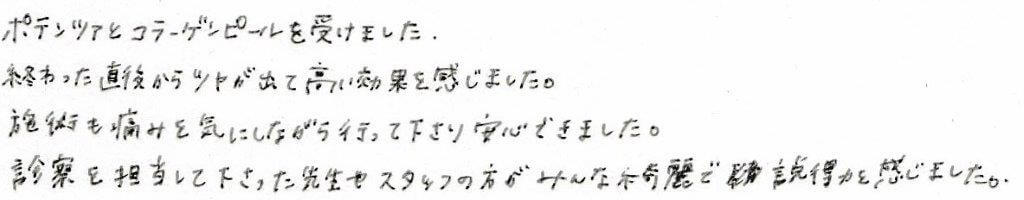 ポテンツァとコラーゲンピールを受けました.
終わった直後からツヤが出て高い効果を感じました。
施術も痛みを気にしながら行って下さり安心できました。
診察を担当して下さった先生やスタッフの方がみんな綺麗で説得力を感じました。